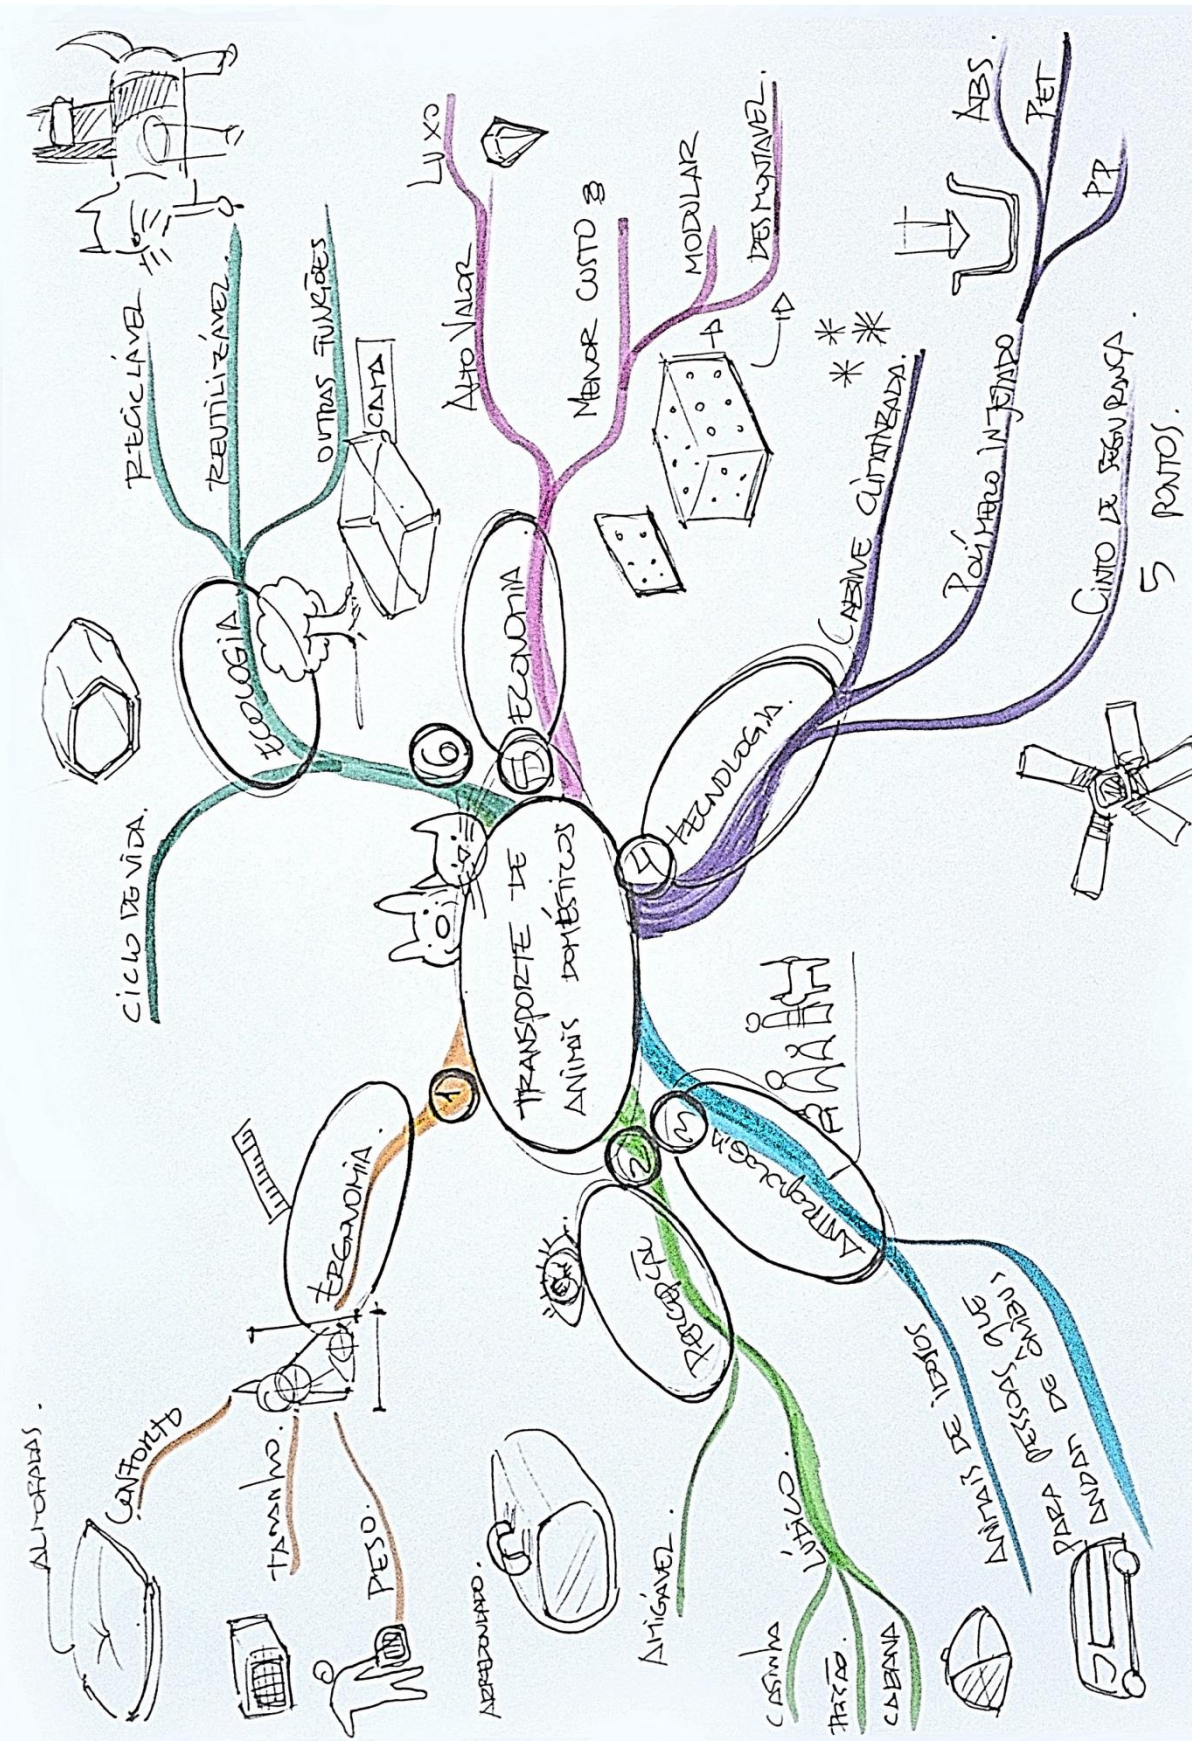 TRANSPORTE DE
ANIMAIS DOMÉSTICOS
1
ERGONOMIA.
CONFORTO
ALMOFADAS.
TAMANHO.
PESO.
2
PERCEPÇÃO
AMIGÁVEL.
ARREDONDADO.
LÚDICO.
CASINHA
CABANA
3
ANTROPOLOGIA
ANIMAIS DE IDOSOS
PARA PESSOAS QUE
ANDAM DE ÔNIBUS
4
TECNOLOGIA.
CABINE CLIMATIZADA.
POLÍMERO INJETADO
ABS.
PET
PP
CINTO DE SEGURANÇA.
5 PONTOS.
5
ECONOMIA
ALTO VALOR
LUXO
MENOR CUSTO
MODULAR
DESMONTÁVEL.
6
ECOLOGIA
CICLO DE VIDA.
RECICLÁVEL
REUTILIZÁVEL.
OUTRAS FUNÇÕES
CAMA